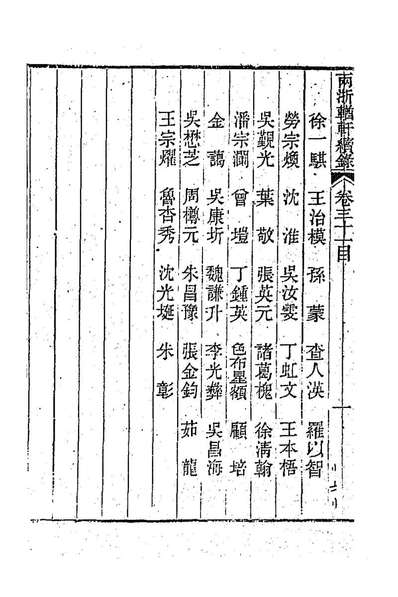 兩浙輶軒續錄 卷三十一目 一
徐一騏 王治模 孫蒙 查人渶 羅以智
勞宗煥 沈淮 吳汝雯 丁虹文 王本梧
吳觀光 葉敬 張英元 諸葛槐 徐清翰
潘宗瀾 曾塏 丁鍾英 色布星額 顧培
金藹 吳康圻 魏謙升 李光彝 吳昌海
吳懋芝 周樽元 朱昌豫 張金鈞 茹龍
王宗燿 魯杏秀 沈光挻 朱彰